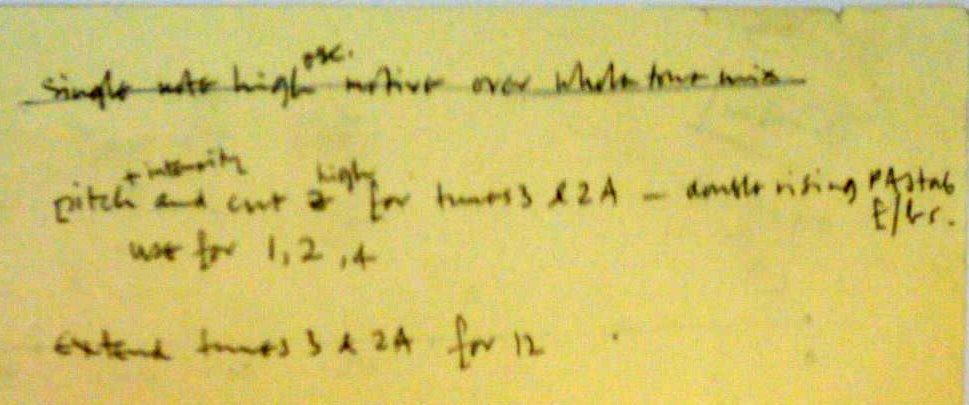 osc.
single note high motive over whole tone mix
+ intensity high
pitch and cut for tunes 3 & 2A – double rising PA stab
E/bs.
use for 1, 2, 4
extend tunes 3 & 2A for 12